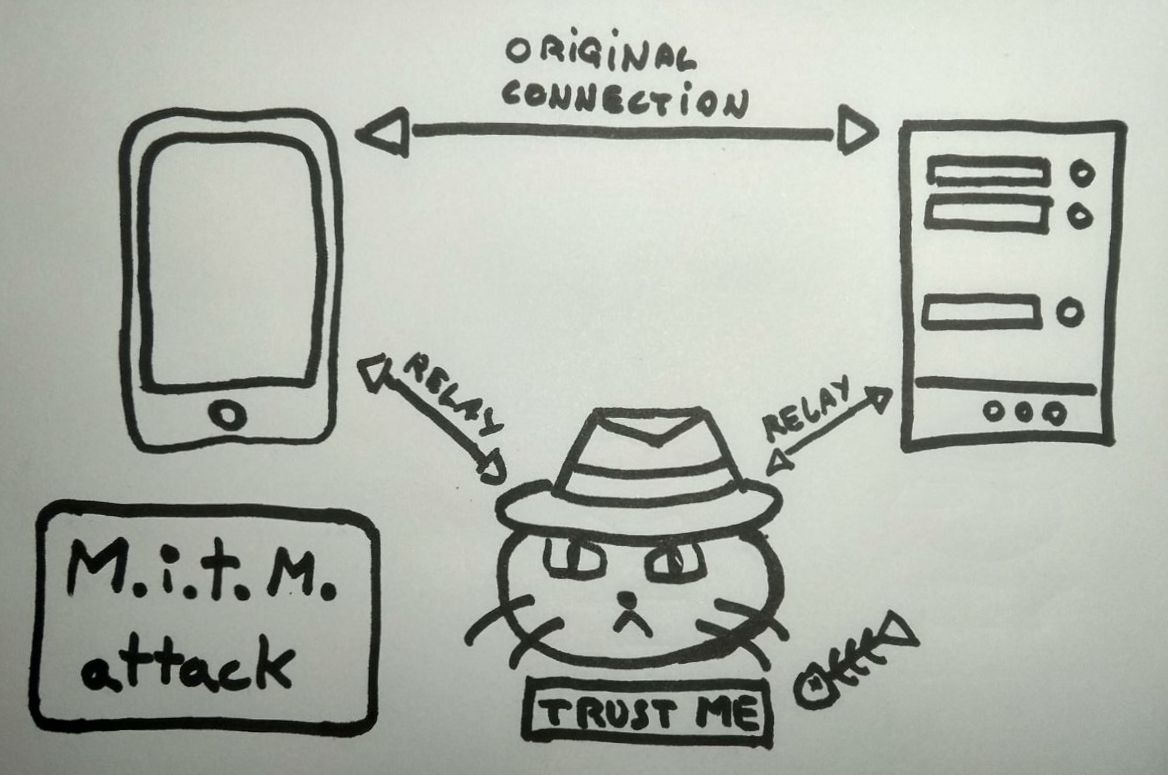 ORiGiNAL
CONNECTiON
RELAY
RELAY
M.i.t.M.
attack
TRUST ME